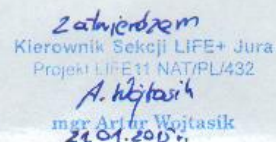 Zatwierdzam
Kierownik Sekcji LiFE+ Jura
Projekt LIFE11 NAT/PL/432
A. Wojtasik
mgr Artur Wojtasik
21.01.2015r.